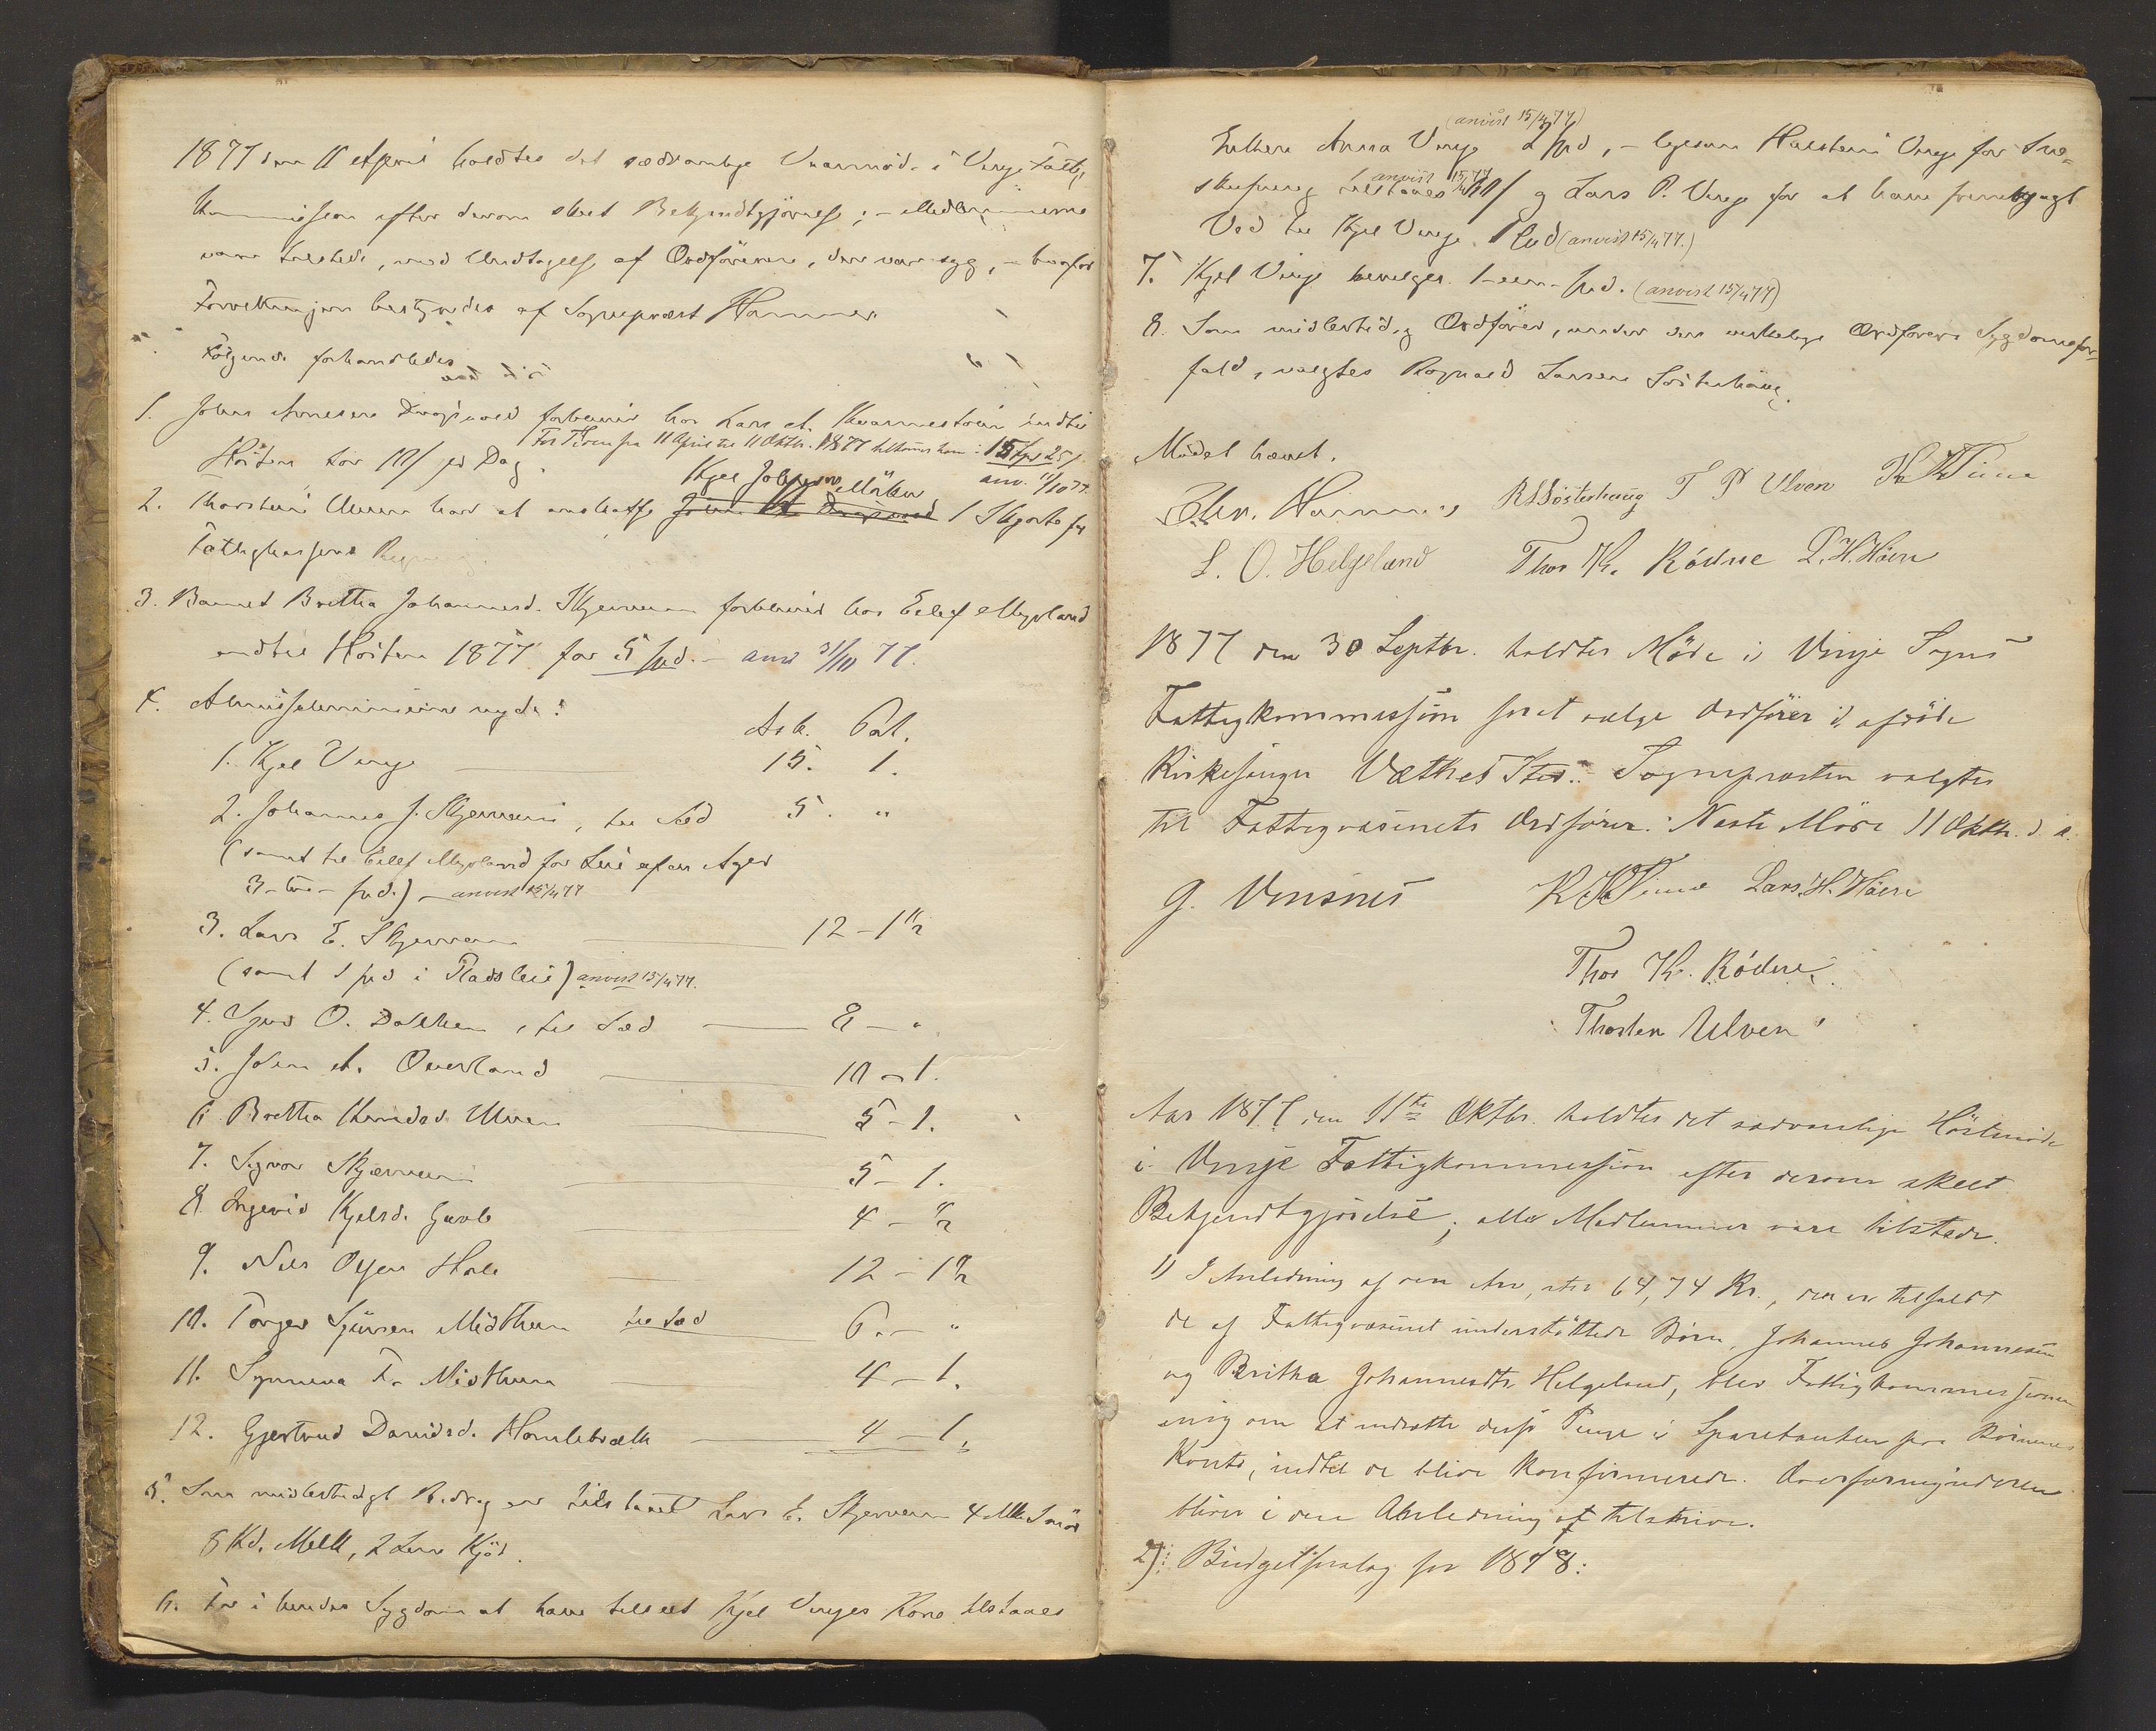 1877 den 11 April holdtes det sædvanlige Vaarmøde i Vinje Fattig
Kommission efter derom skeet Bekjendtgjørelse; – Medlemmerne
vare tilstede, med Undtagelse af Ordføreren, der var syg, – hvorfor
Forretningen bestyredes af Sognepræst Hammer.
Følgende forhandledes
1. Johan Arnesen forbliver hos Lars A. indtil
For Tiden fra 11 April til 11 Oktbr. 1877 tilkommer ham: 15 Spd 25 /.
Høsten for 10/ pr Dag.
anv. 11/10 77.
Kjel Johnsen Mølster
2. Thorstein Ulven har at anskaffe 1 Skjorte for
Fattigkassens Regning.
3. Barnet Brittha Johannesd. Skjerven forbliver hos Eilef Mygland
indtil Høsten 1877 for 5 spd. – anv 31/10 77.
4. Almisselemmerne nyde:
Ark. Pal.
1. Kjel Vinje 15. 1.
2. Johannes J. Skjerven, til Sæd 5. "
(samt til Eilef Mygland for Leie af en Ager
3 – tre – spd.) – anvist 15/4 77
3. Lars E. Skjerven 12 – 1 1/2
(samt 1 spd i Pladsleie) anvist 15/4 77.
4. Sjur O. , til Sæd 8 – "
5. Johan A. Overland 10 – 1.
6. Brittha Ulven 5 – 1.
7. Sygvor Skjerven 5 – 1.
8. Ingerid Kjelsd. 4 – 1/2
9. Nils Olsen 12 – 1 1/2
10. Torger Sjursen Midthun til Sæd 6. – "
11. Synneva T. Midthun 4 – 1.
12. Gjertrud Davidsd. 4 – 1.
5. Som midlertidigt Bidrag er tilstaaet Lars E. Skjerven 4 Mk Smør
8 Kd. Melk, 2 Kjød.
6. For i hendes Sygdom at have tilseet Kjel Vinjes Kone tilstaaes
(anvist 15/4 77)
Enken Anna Vinje 2 spd, – ligesom Halstein Vinje for
anvist 15/4 77
skydsning tilstaaes 60/ og Lars P. Vinje for at have frembragt
Ved til Kjel Vinje 1 spd (anvist 15/4 77.)
7. Kjel Vinje bevilges 1 – een – spd. (anvist 15/4 77)
8. Som midlertidig Ordfører, under den virkelige Ordførers Sygdomsfor-
fald, valgtes Rognald Larsen Sösterhaug.
Mødet hævet.
Chr. Hammer R L Sösterhaug T P Ulven K K Tune
L. O. Helgeland Thor K. Rödne L. H. Höen
1877 den 30 Septbr. holdtes Møde i Vinje Sogns
Fattigkommission for at vælge Ordfører i afdøde
Kirkesanger Væthes Sted. Sognepresten valgtes
til Fattigvæsenets Ordfører. Neste Møde 11 Oktbr. d. a.
G. Vinsnes K K Tune Lars. H. Höen
Thor K. Rödne.
Thosten Ulven
Aar 1877 den 11te Oktbr. holdtes det sædvanlige Høstmøde
i Vinje Fattigkommission efter derom skeet
Bekjendtgjørelse; alle Medlemmer vare tilstede.
1) I Anledning af den Arv, stor 64,74 Kr., der er tilfaldt
de af Fattigvæsenet understøttede Børn, Johannes Johannesen
og Britha Johannesdtr Helgeland, blev Fattigkommissionen
enig om at indsætte disse Penge i Sparebanken paa Børnenes
Konto, indtil de blive konfirmerede. Overformynderen
bliver i den Anledning at tilskrive.
2) Budgetforslag for 1878: